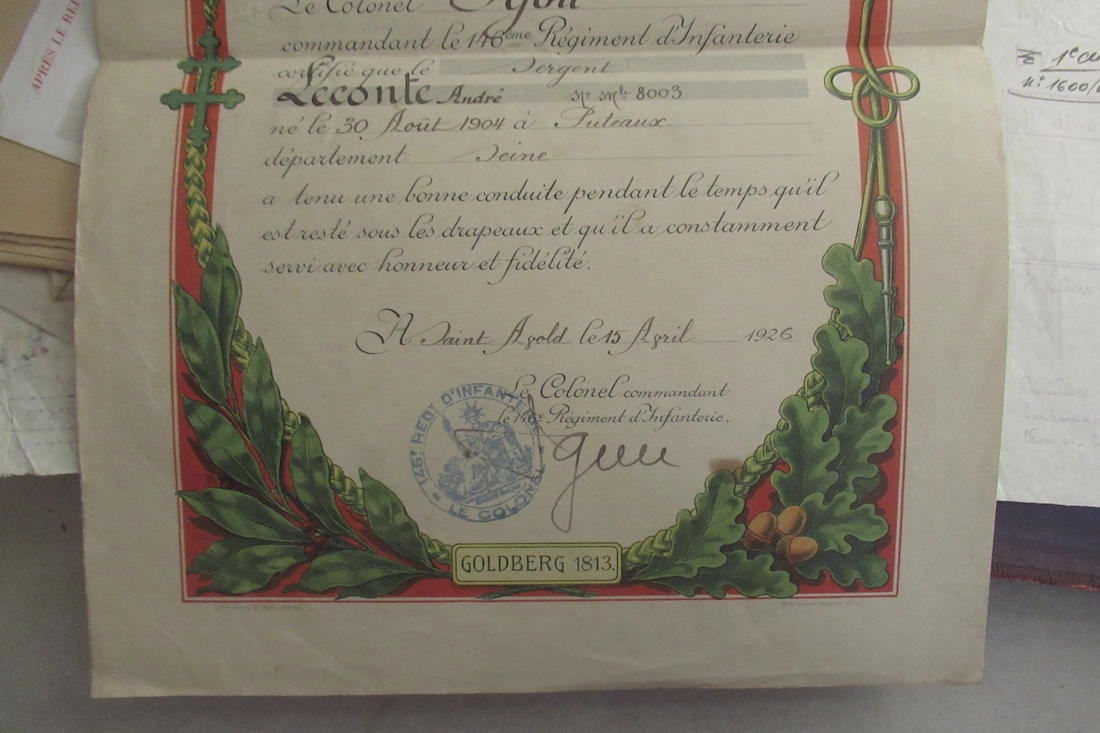 Le Colonel
commandant le 146ème Régiment d'Infanterie
certifié que le Sergent
Leconte André No Mle 8003
né le 30 Août 1904 à Puteaux
département Seine
a tenu une bonne conduite pendant le temps qu'il
est resté sous les drapeaux et qu'il a constamment
servi avec honneur et fidélité.
A Saint Avold le 15 Avril 1926
Le Colonel commandant
le 146e Régiment d'Infanterie.
146e REGT D'INFANTERIE
LE COLONEL
GOLDBERG 1813.
APRÈS LE
1e
No 1600/